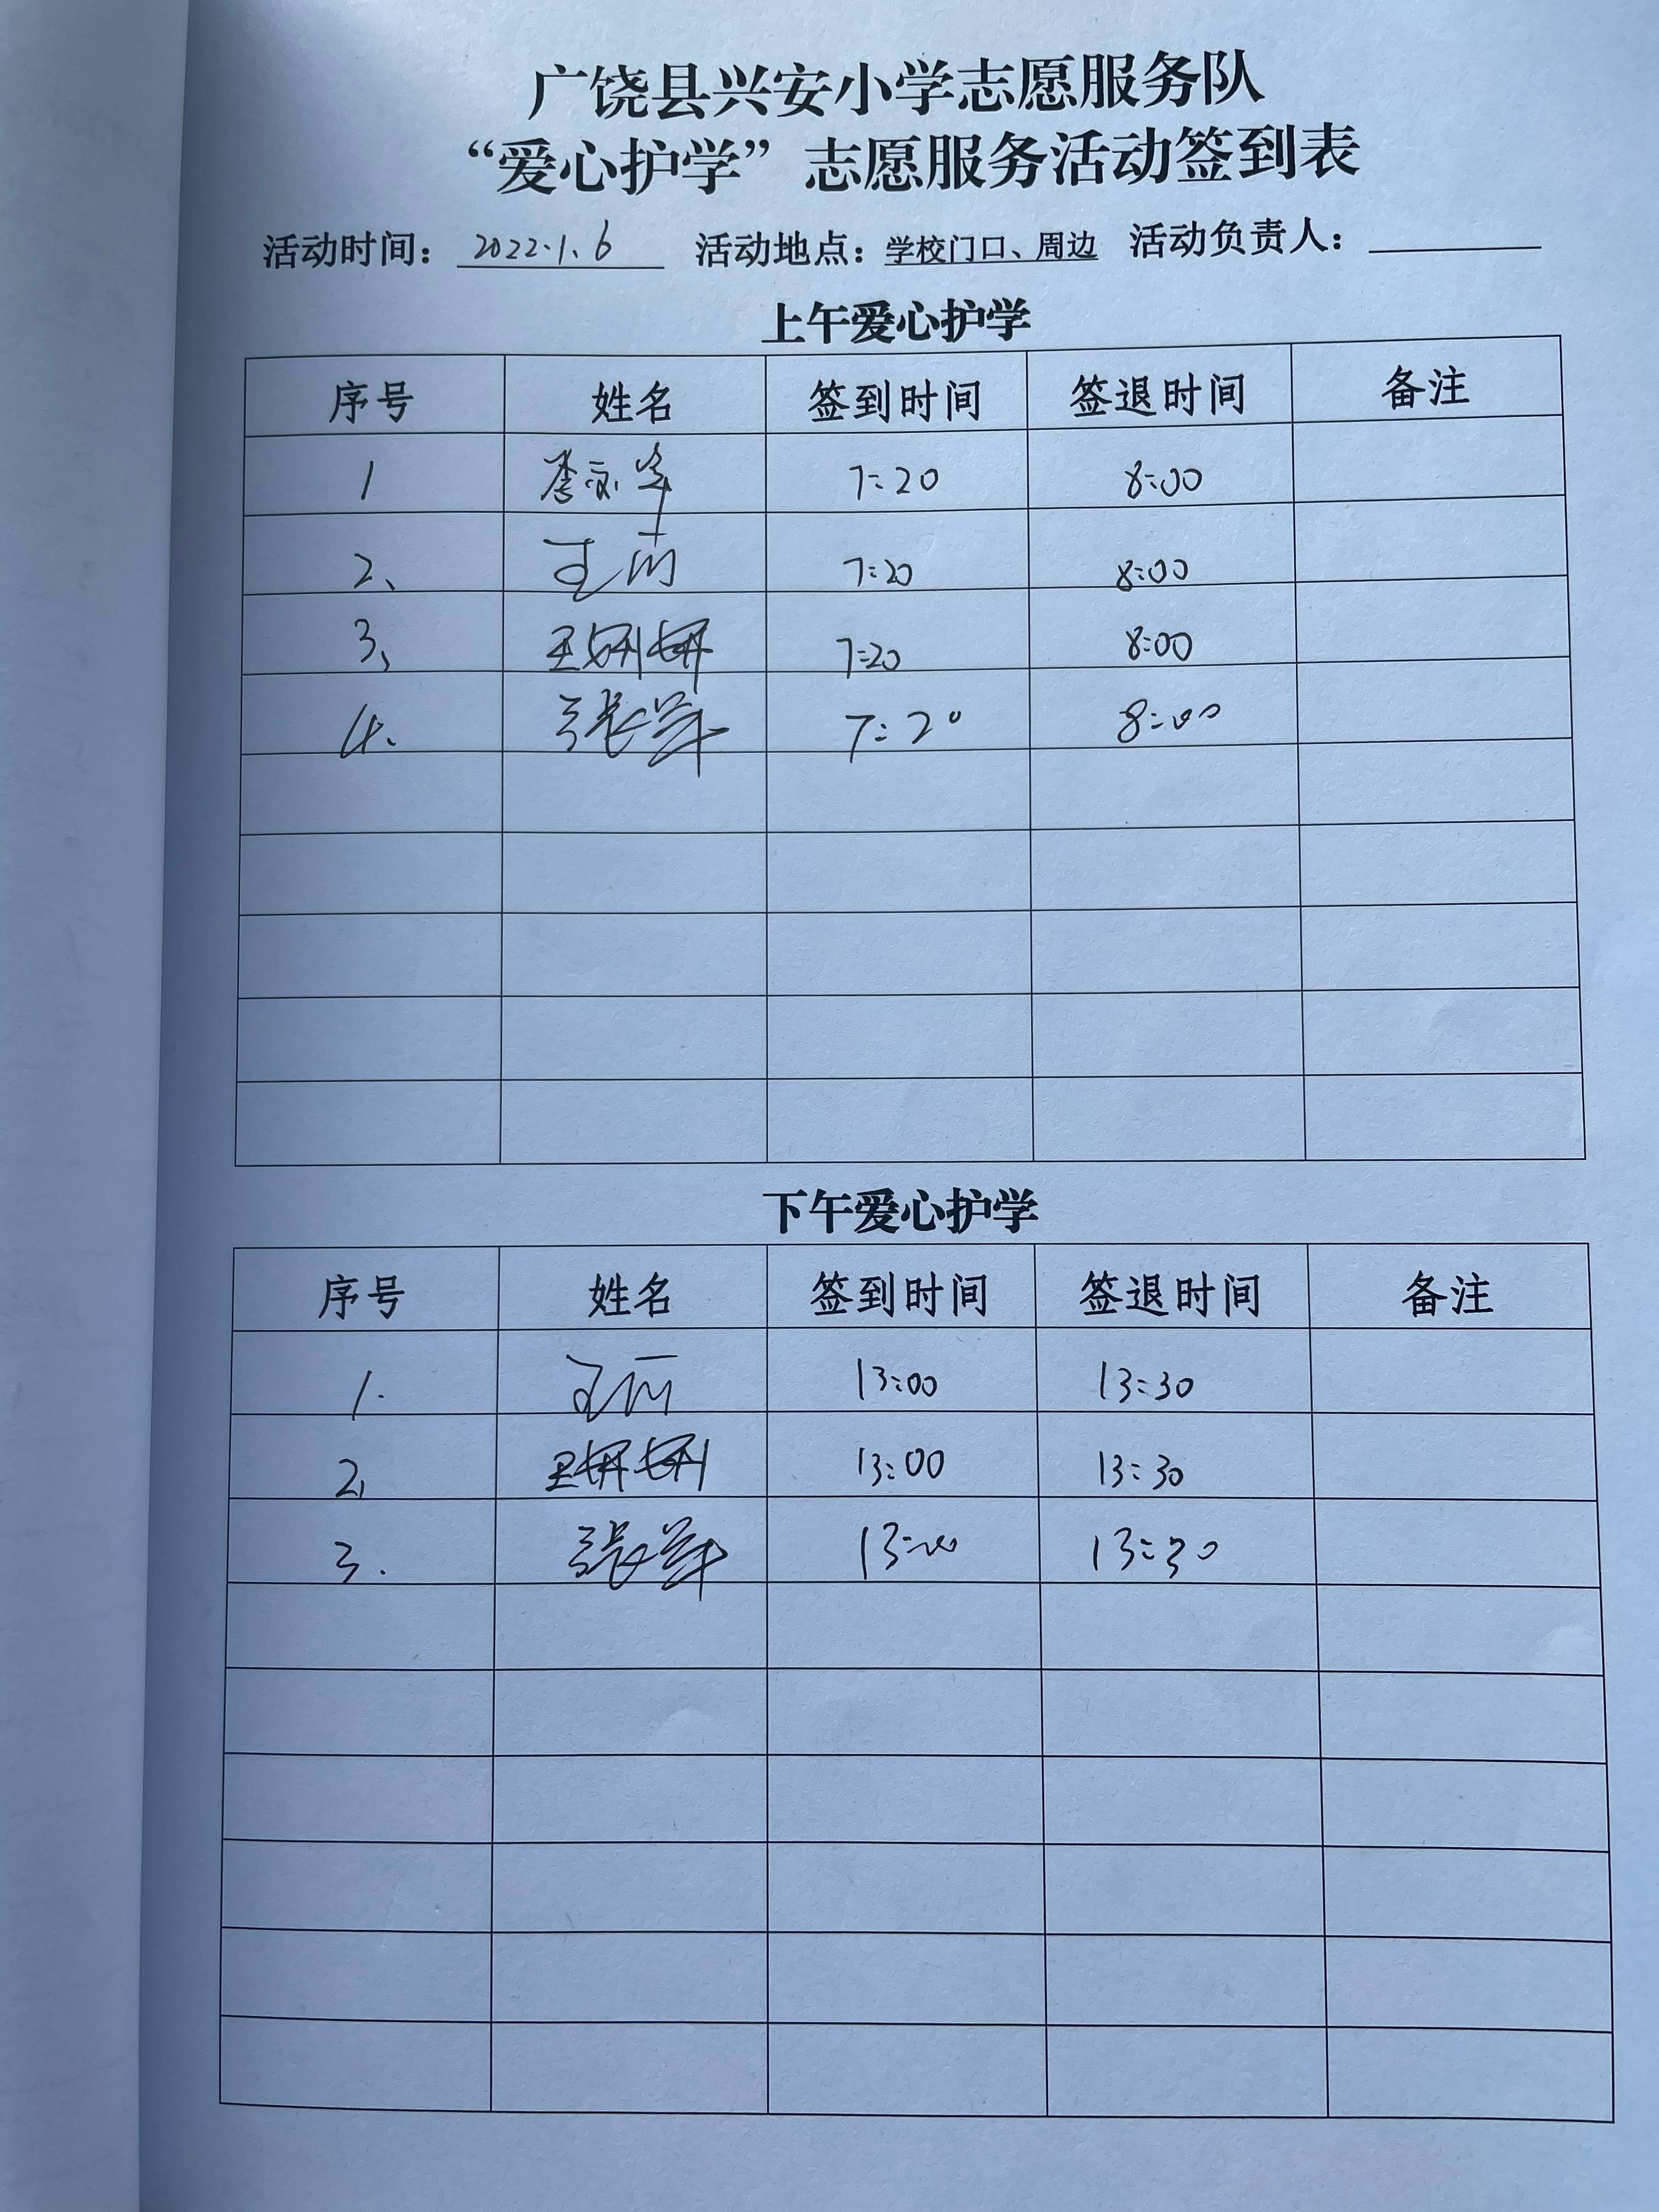 广饶县兴安小学志愿服务队
“爱心护学”志愿服务活动签到表
活动时间：2022.1.6 活动地点：学校门口、周边 活动负责人：
上午爱心护学
序号 姓名 签到时间 签退时间 备注
1 李 7:20 8:00
2、 王 7:20 8:00
3、 王妍妍 7:20 8:00
4. 张 7:20 8:00
下午爱心护学
序号 姓名 签到时间 签退时间 备注
1. 王 13:00 13:30
2、 王妍妍 13:00 13:30
3. 张 13:00 13:30